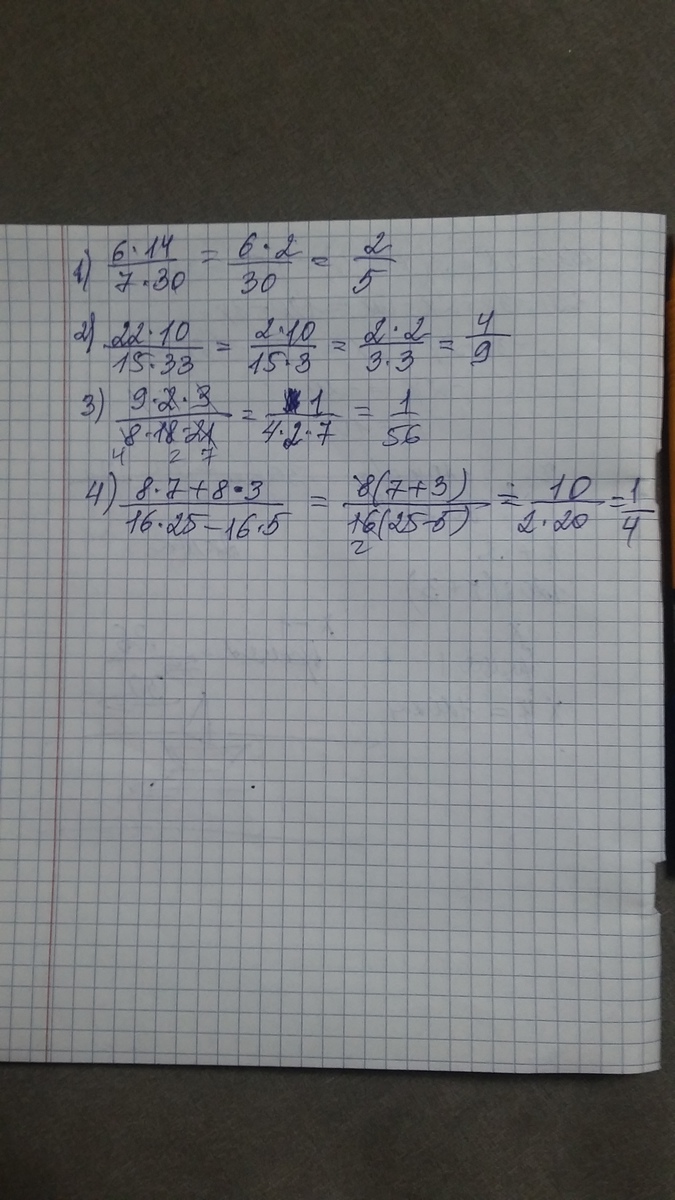 1) 6·14/7·30 = 6·2/30 = 2/5
2) 22·10/15·33 = 2·10/15·3 = 2·2/3·3 = 4/9
3) 9·2·3/8·18·21 = 1/4·2·7 = 1/56
4 2 7
4) 8·7+8·3/16·25-16·5 = 8(7+3)/16(25-5) = 10/2·20 = 1/4
2